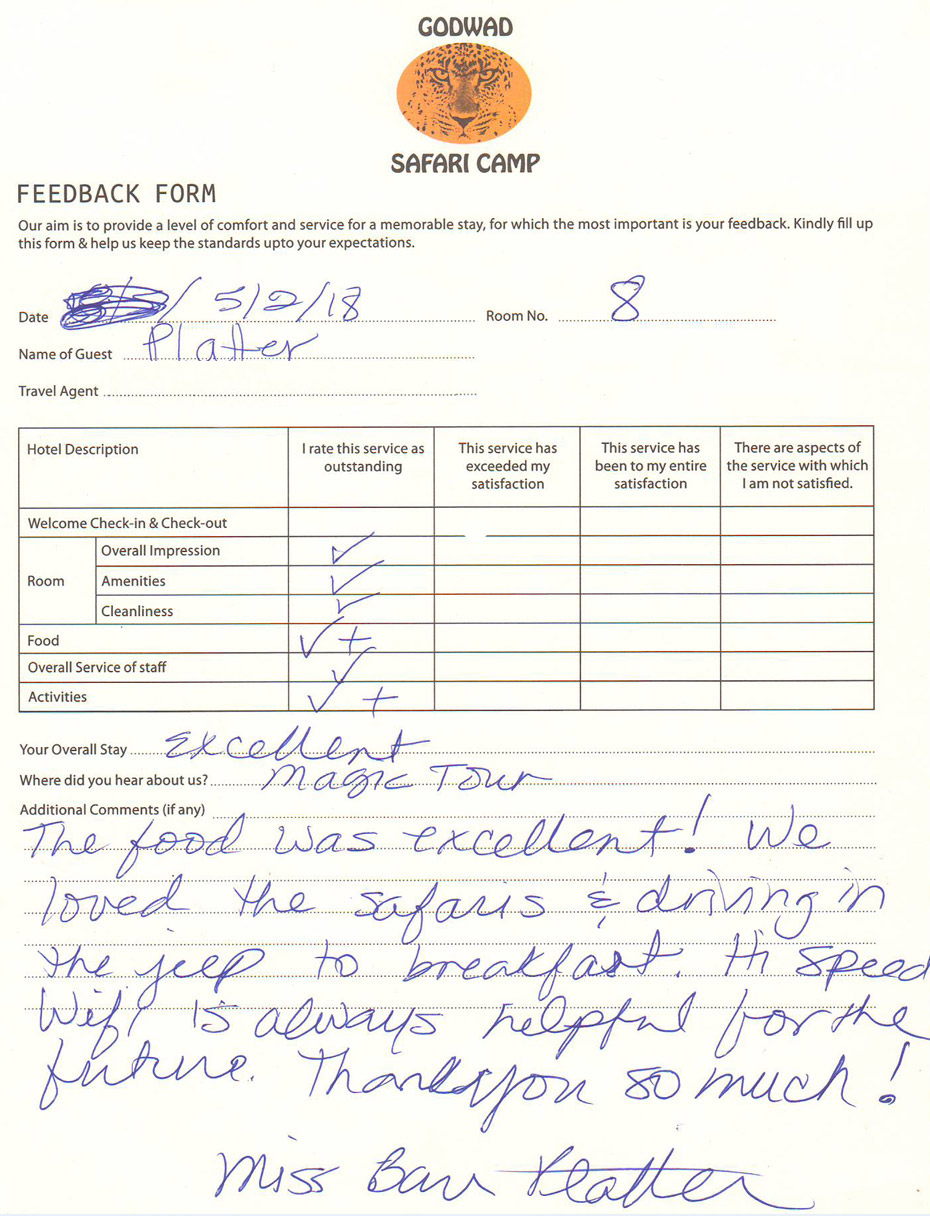 GODWAD
SAFARI CAMP
FEEDBACK FORM
Our aim is to provide a level of comfort and service for a memorable stay, for which the most important is your feedback. Kindly fill up
this form & help us keep the standards upto your expectations.
Date / 5/2/18 Room No. 8
Name of Guest Platter
Travel Agent
Hotel Description
I rate this service as outstanding
This service has exceeded my satisfaction
This service has been to my entire satisfaction
There are aspects of the service with which I am not satisfied.
Welcome Check-in & Check-out
Room
Overall Impression ✓
Amenities ✓
Cleanliness ✓
Food ✓ +
Overall Service of staff ✓
Activities ✓ +
Your Overall Stay Excellent
Where did you hear about us? Magic Tour
Additional Comments (if any)
The food was excellent! We
loved the safaris & driving in
the jeep to breakfast. Hi speed
Wifi is always helpful for the
future. Thank you so much!
Miss Platter